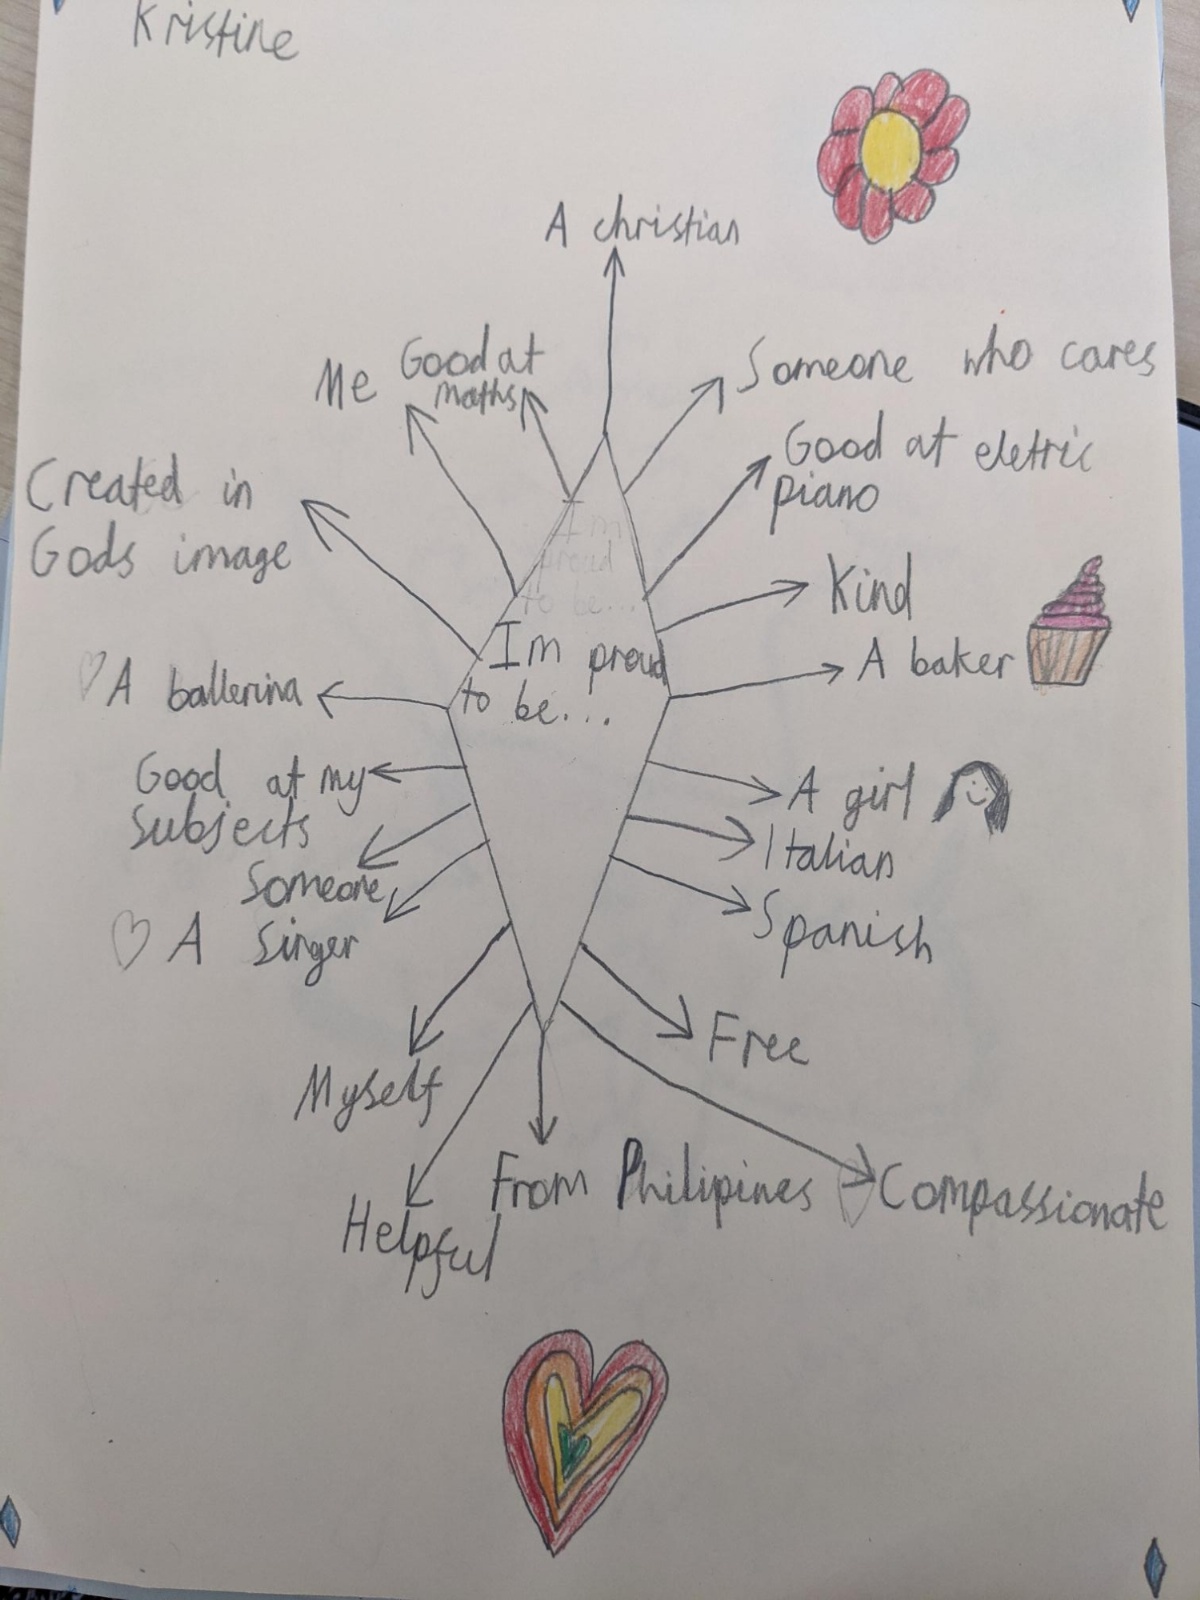 Kristine
A christian
Me
Good at
maths
Someone who cares
Good at eletric
piano
Created in
Gods image
I'm
proud
to be...
Kind
I'm proud
to be...
A baker
A ballerina
Good at my
subjects
A girl
Italian
Someone
A singer
Spanish
Free
Myself
From Philipines
Compassionate
Helpful